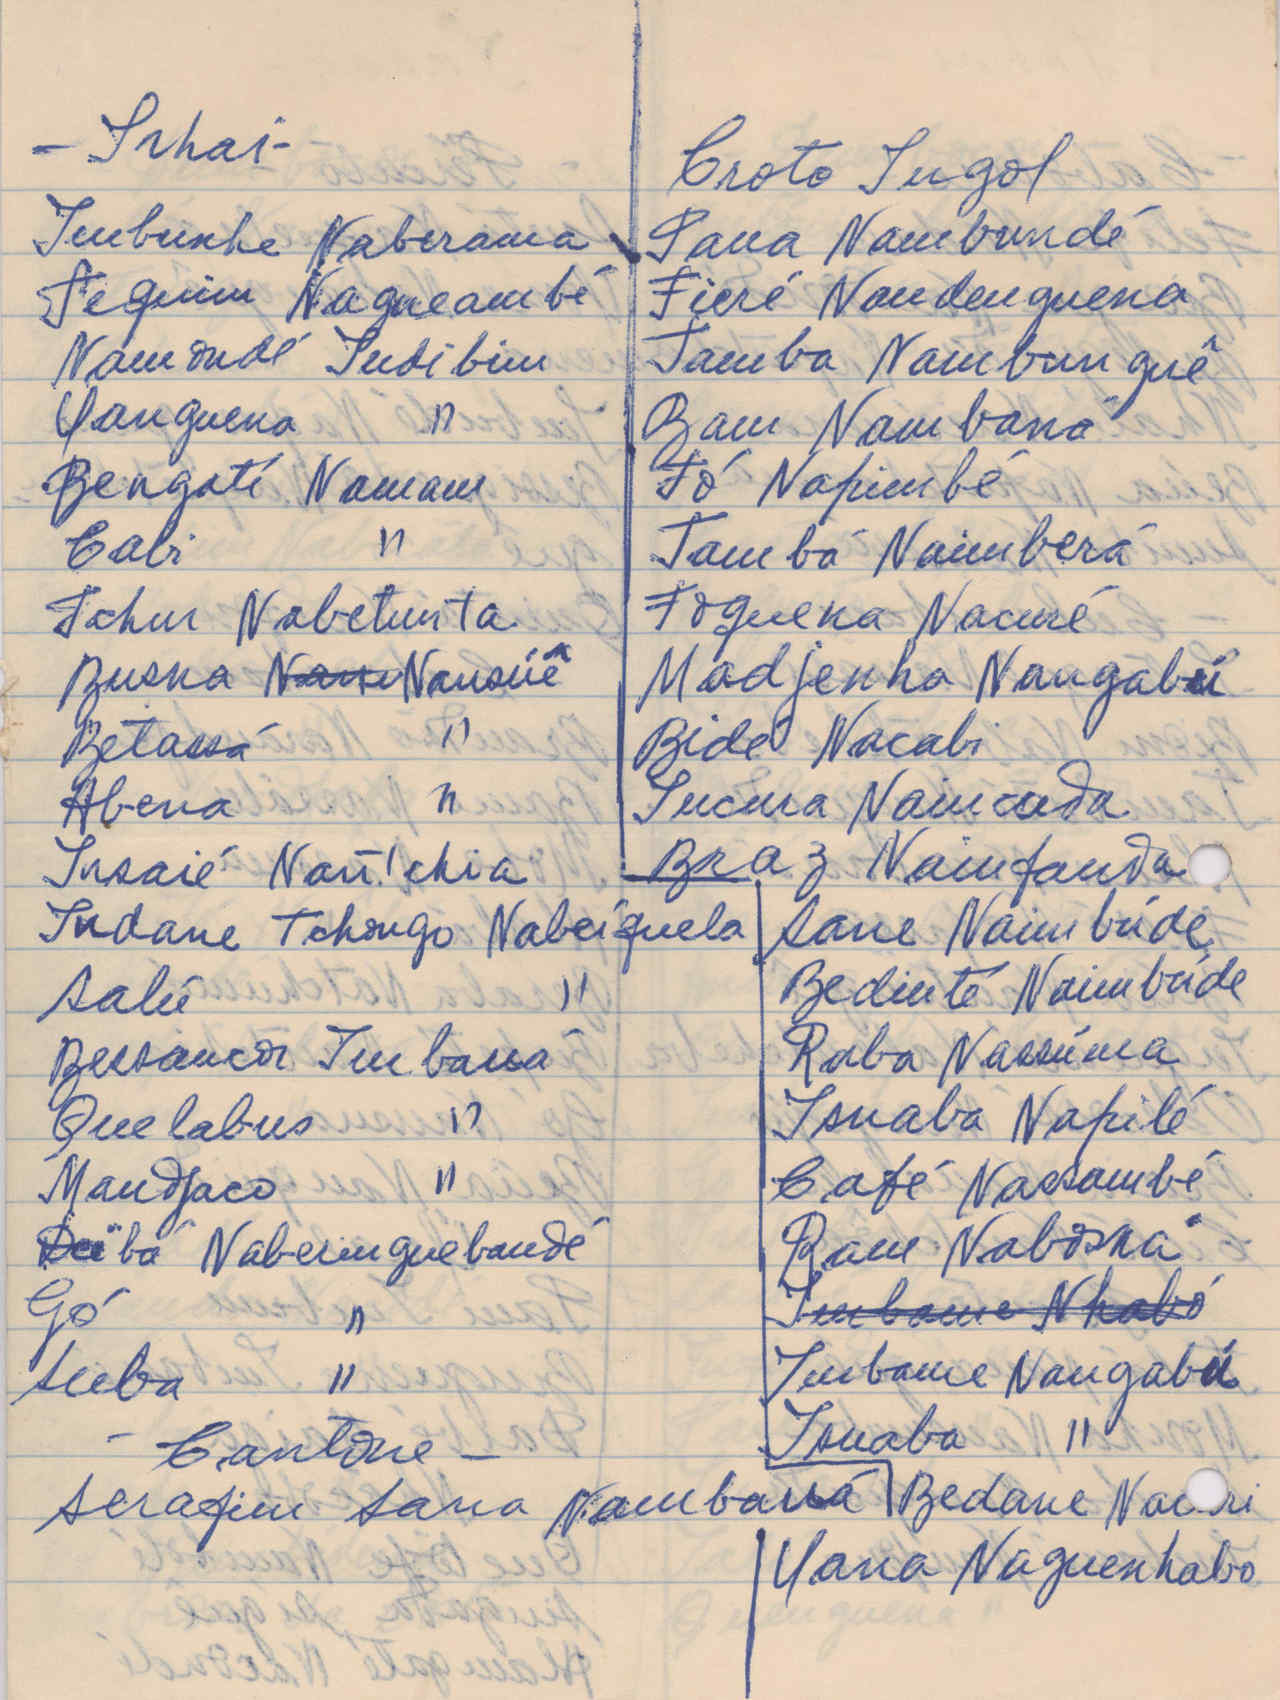 - Inhai -
Imbunhe Naberama
Fequim Nagueambé
Namondé Indibim
Yanguena "
Bengatí Namam
Cabi "
Tchur Nabetunta
Busna Nansúê
Betassá "
Abena "
Insaié Nan'tchia
Indane Tchongo Nabeíguela
Salú "
Bessancor Imbaná
Quelabus "
Mandjaco "
bá Naberinguebandé
Gó "
Suba "
- Cantone -
Serafim Sana Nambaná
Croto Ingol
Pana Nambundé
Fieré Nandenguena
Tamba Nambunguê
Bam Nambaná
Fó Napimbé
Tambá Naimberá
Foguena Nacuré
Madjenha Nangabú
Bidé Nacabi
Incura Naincuda
Braz Nainfanda
Sane Naimbúde
Bedinté Naimbúde
Raba Nassúma
Isnaba Napilé
Café Nassambé
Bam Nabosná
Imbame Nhabó
Imbame Nangabú
Isnaba "
Bedane
Yana Naguenhabo